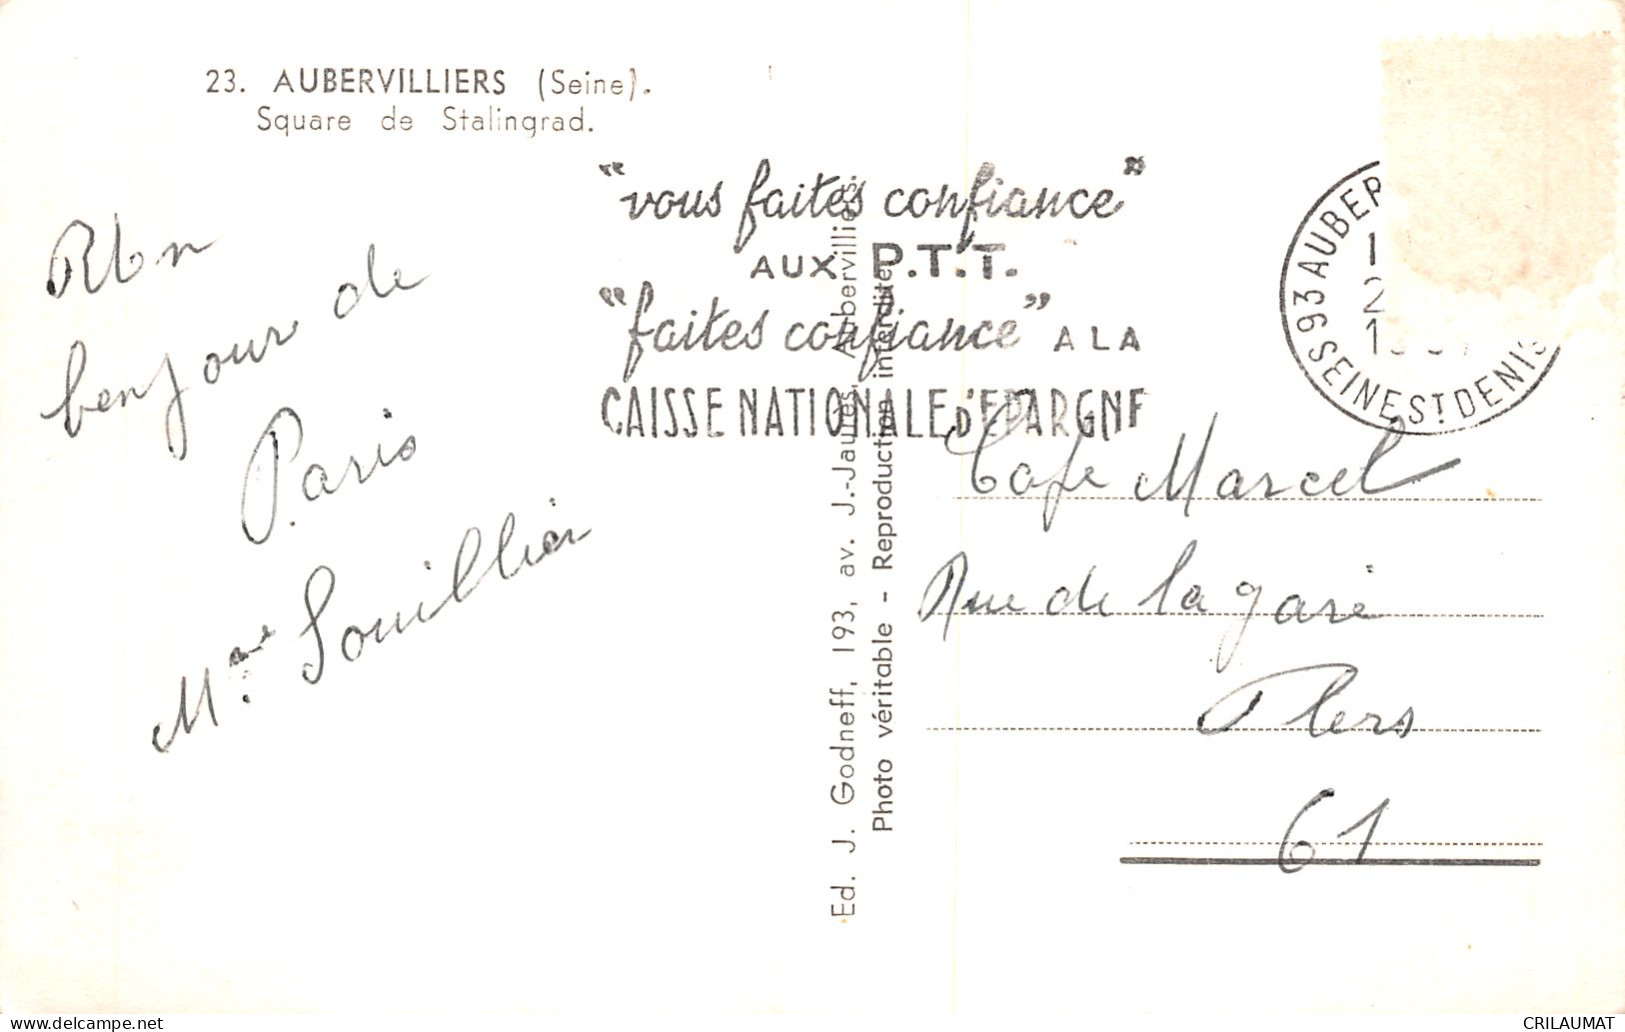 23. AUBERVILLIERS (Seine).
Square de Stalingrad.
"vous faites confiance"
AUX P.T.T.
"faites confiance" A LA
CAISSE NATIONALE D'EPARGNE
93 AUBER
SEINE ST DENIS
bonjour de
Paris
Mme Souillier
Ed. J. Godneff, 193, av. J.-Jaurès, Aubervilliers
Photo véritable - Reproduction interdite
Cafe Marcel
Rue de la gare
Flers
61
www.delcampe.net
CRILAUMAT